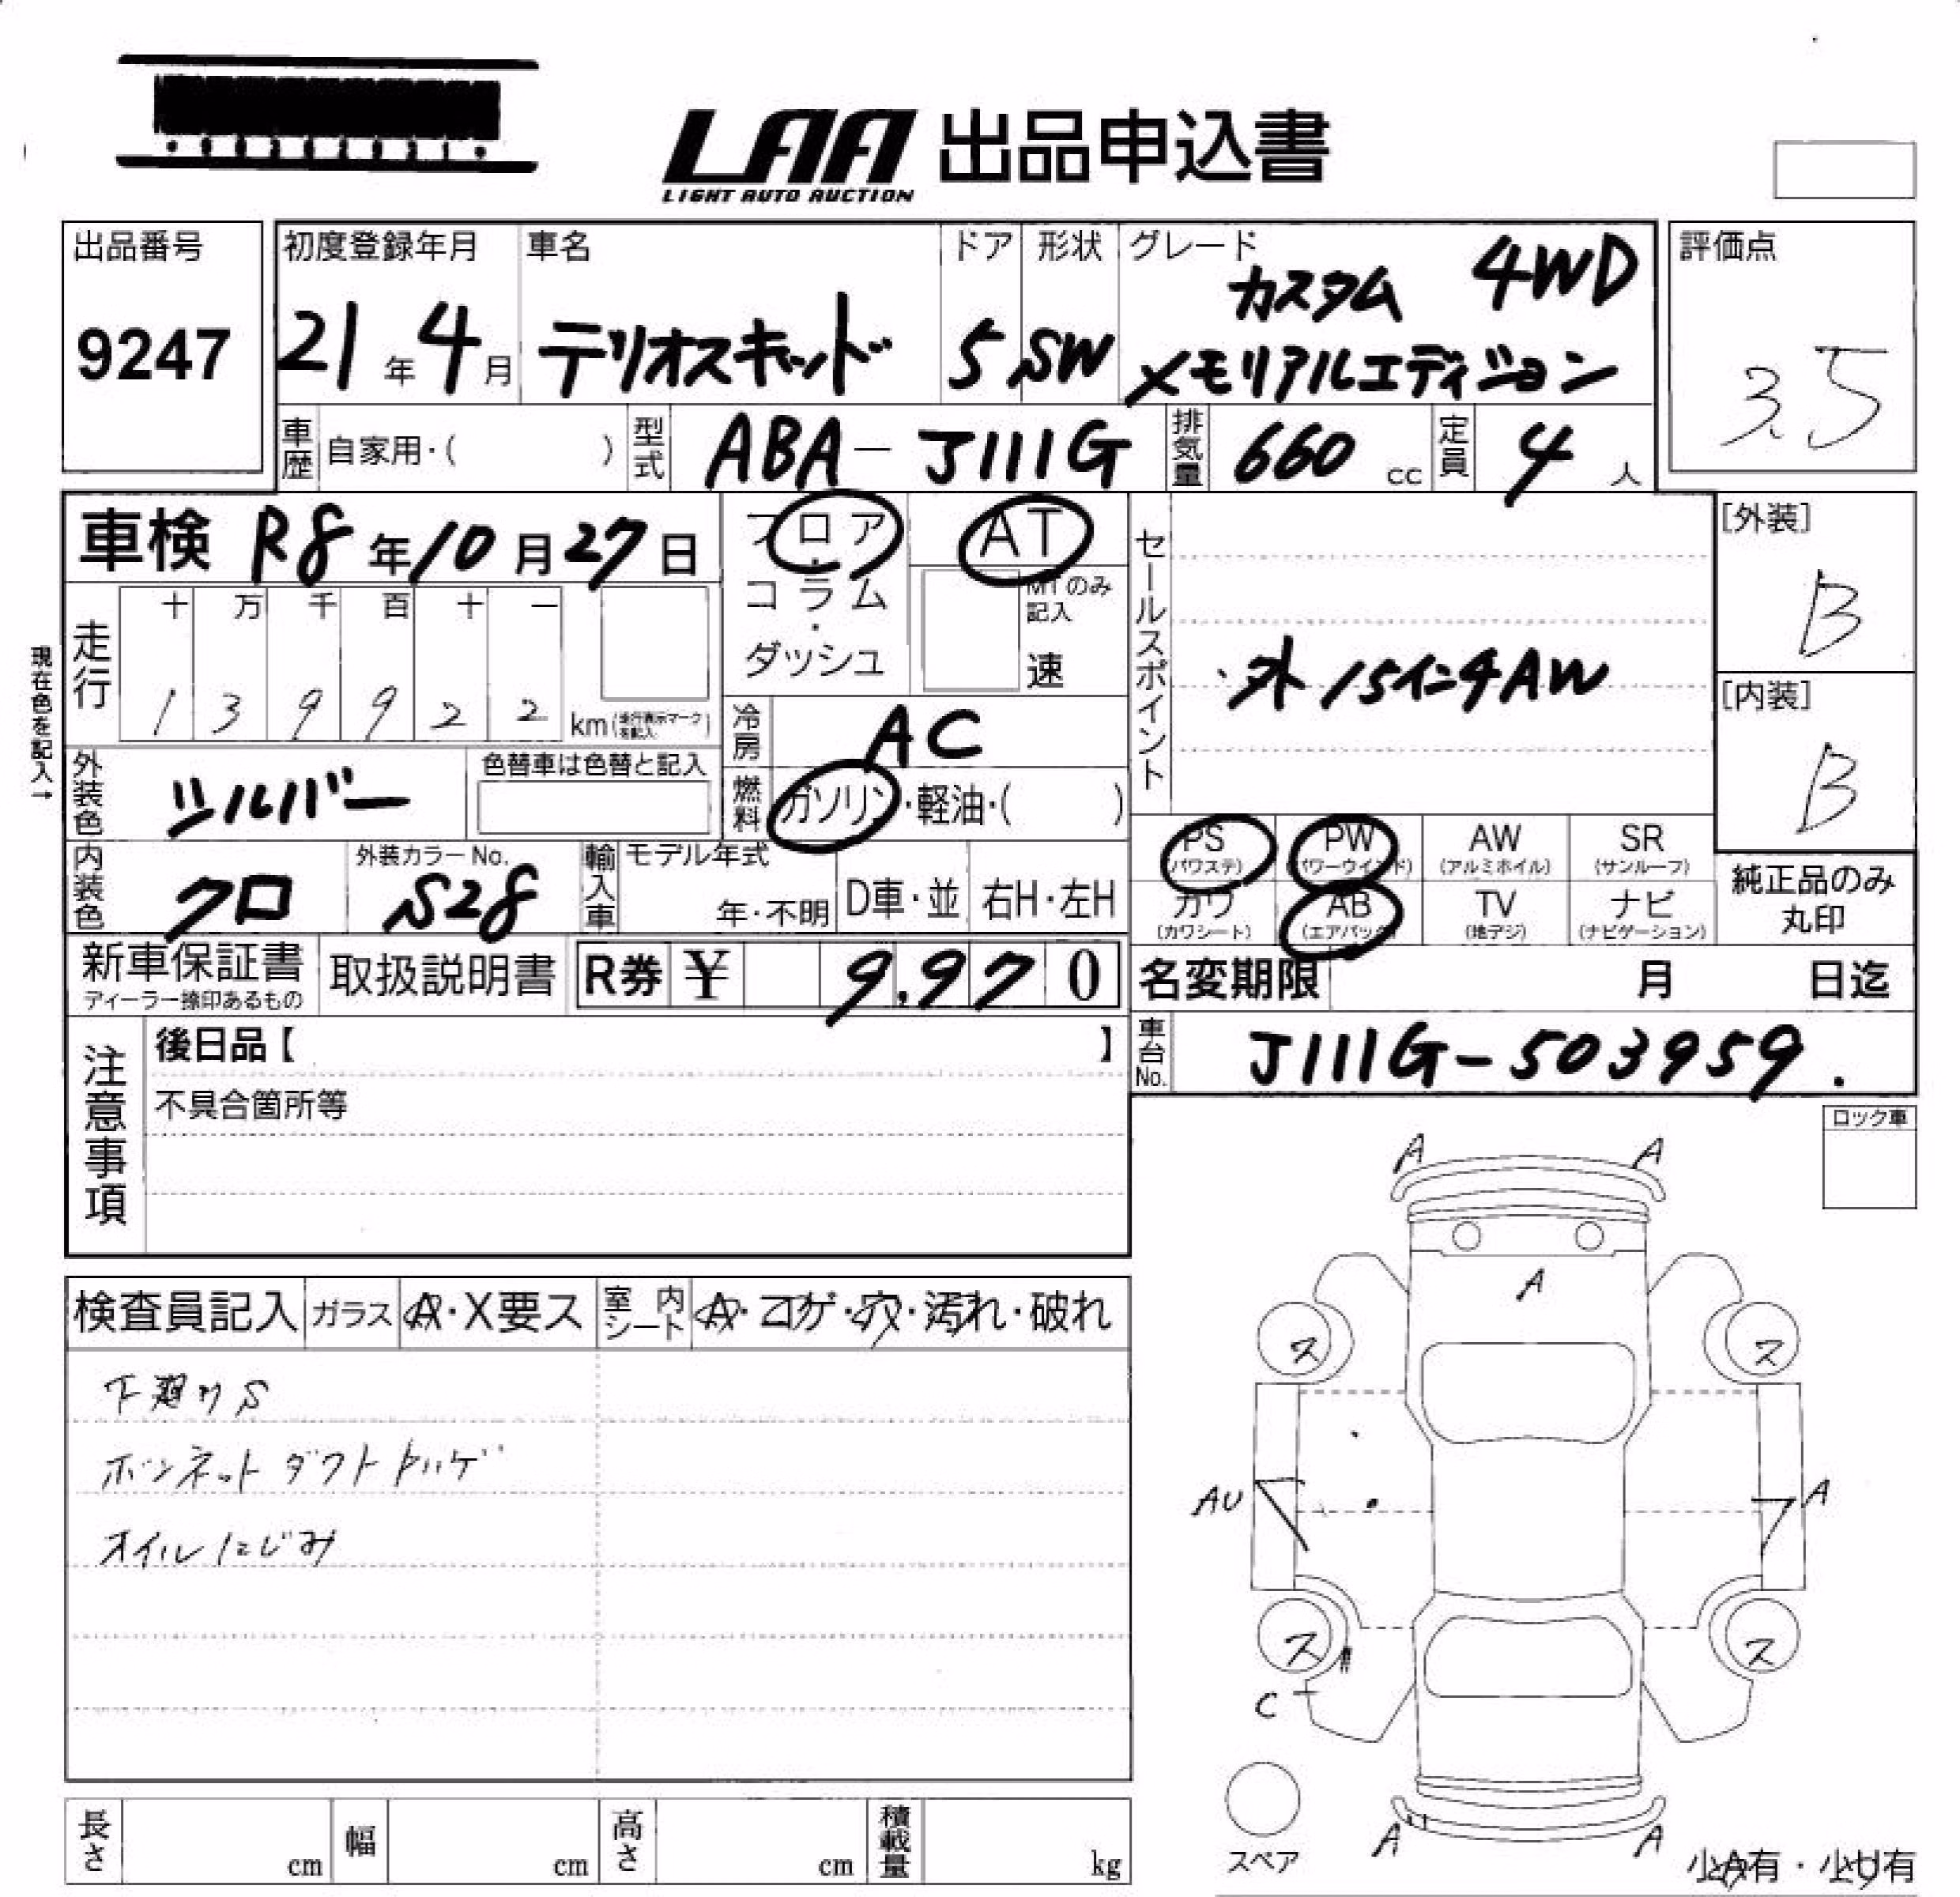 LAA 出品申込書
LIGHT AUTO AUCTION
出品番号
9247
初度登録年月
21年4月
車名
テリオスキッド
ドア
5
形状
SW
グレード
カスタム 4WD
メモリアルエディション
評価点
3.5
車歴 自家用・( )
型式 ABA-J111G
排気量 660 cc
定員 4 人
車検 R8年10月27日
フロア・コラム・ダッシュ
AT
MTのみ記入
速
走行
十 万 千 百 十 一
1 3 9 9 2 2 km(走行表示マークを記入)
現在色を記入→
冷房 AC
外装色 シルバー
色替車は色替と記入
燃料 ガソリン・軽油・( )
内装色 クロ
外装カラーNo. S28
輸入車 モデル年式
年・不明
D車・並
右H・左H
セールスポイント
・外15インチAW
[外装]
B
[内装]
B
PS (パワステ)
PW (パワーウインド)
AW (アルミホイル)
SR (サンルーフ)
カワ (カワシート)
AB (エアバック)
TV (地デジ)
ナビ (ナビゲーション)
純正品のみ丸印
新車保証書
ディーラー捺印あるもの
取扱説明書
R券 ¥ 9,970
名変期限 月 日迄
車台No. J111G-503959.
注意事項
後日品【 】
不具合箇所等
ロック車
検査員記入
ガラス A・X要ス
室内シート A・コゲ・穴・汚れ・破れ
下廻りS
ボンネットダクトトハゲ
オイルにじみ
A A
A
ス ス
AU A
ス ス
C
A A
スペア
少A有・少U有
長さ cm
幅 cm
高さ cm
積載量 kg